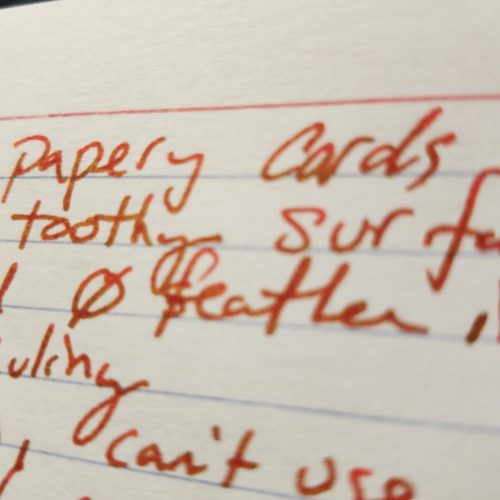 papery cards
toothy surfa
Ø feather,
uling
can't use